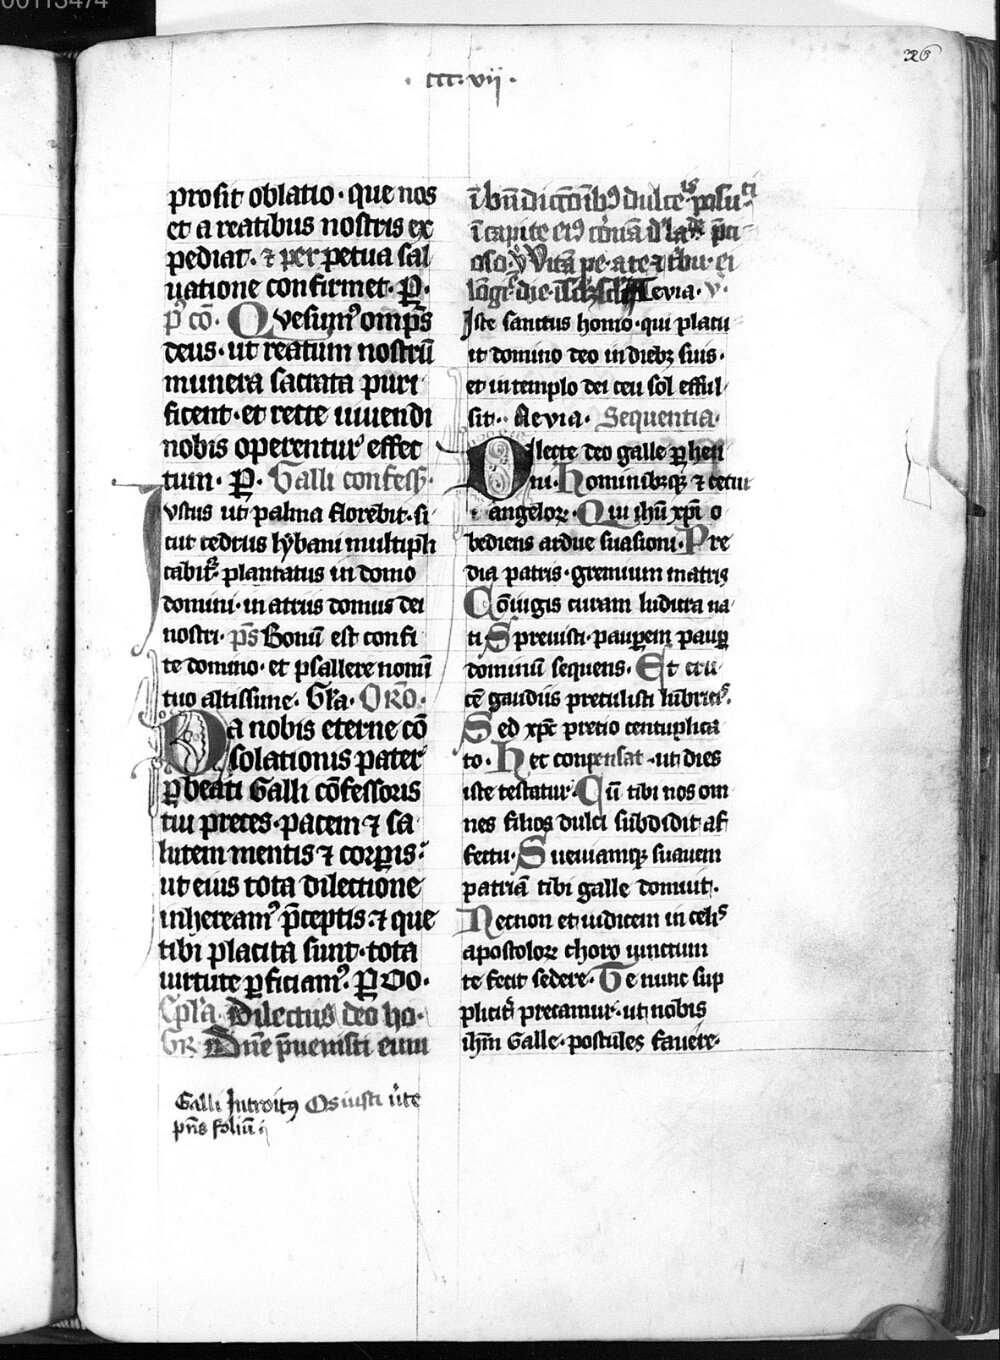 00113474
326
· ccc · vii ·
profit oblatio · que nos
et a reatibus nostris ex
pediat · ⁊ perpetua sal
uatione confirmet · P̲ ·
p̲9 cō · Qvesum9 omp̄s
deus · ut reatum nostrū
munera sacrata puri
ficent · et recte uiuendi
nobis operentur effec
tum · P̲ · Galli confess̄ ·
Iustus ut palma florebit · si
cut cedrus lybani multipli
cabit᷑ plantatus in domo
domini · in atriis domus dei
nostri · p̄s Bonū est confi
te domino · et psallere nomī
tuo altissime · Gl̄a · Oro ·
Da nobis eterne cō
solationis pater
p̲ beati Galli cōfessoris
tui preces · pacem ⁊ sa
lutem mentis ⁊ corp̲is :
ut eius tota dilectione
inhereamꝰ p̄ceptis · ⁊ que
tibi placita sunt · tota
uirtute p̲ficiamꝰ · P̲ Do ·
Ep̄l̄a Dilectus deo ho ·
GR Dn̄e p̄uenisti eum
Galli Introitꝰ Os iusti
pn̄s foliū
ī bn̄diccōibꝰ dulce posui
ī capite eiꝰ
oso · v̄ Vitā pe · a te ⁊ tbu · ei
Aevia · v ·
Iste sanctus homo · qui placu
it domino deo in diebꝫ suis ·
et in templo dei ceu sol efful
sit · Aevia · Sequentia ·
Dilecte deo galle p̲hen
ni · Hominibꝫqꝫ ⁊ cetui
angeloꝝ · Qui ih̄u xp̄i o
bediens ardue suasioni · Pre
dia patris · gremium matris
Cōiugis curam ludicra na
ti Spreuisti · paup̲em paup̲
dominū sequens · Et cru
cē gaudiis pretulisti lubricis ·
Sed xpc̄ precio centuplica
to · Hec conpensat · ut dies
iste testatur · Cū tibi nos om
nes filios dulci subdidit af
fectu · Sueuiamqꝫ suauem
patriā tibi galle donuit ·
Necnon et iudicem in celis
apostoloꝝ choro iunctum
te fecit sedere · Te nunc sup
plicit̄ precamur · ut nobis
ih̄m Galle · postules fauere ·